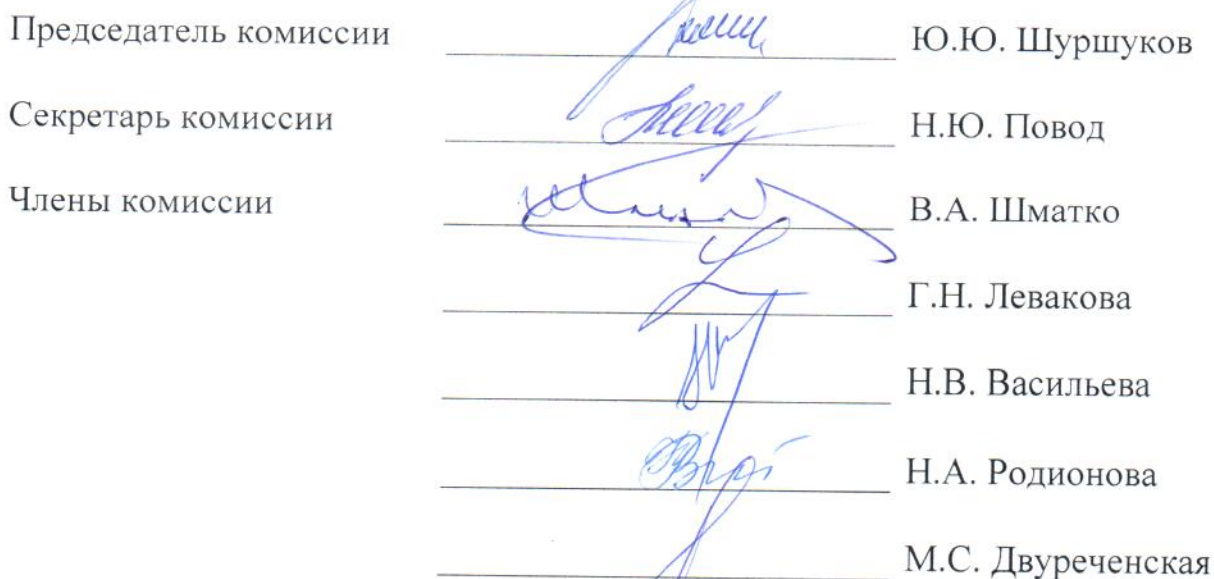 Председатель комиссии Ю.Ю. Шуршуков
Секретарь комиссии Н.Ю. Повод
Члены комиссии В.А. Шматко
Г.Н. Левакова
Н.В. Васильева
Н.А. Родионова
М.С. Двуреченская